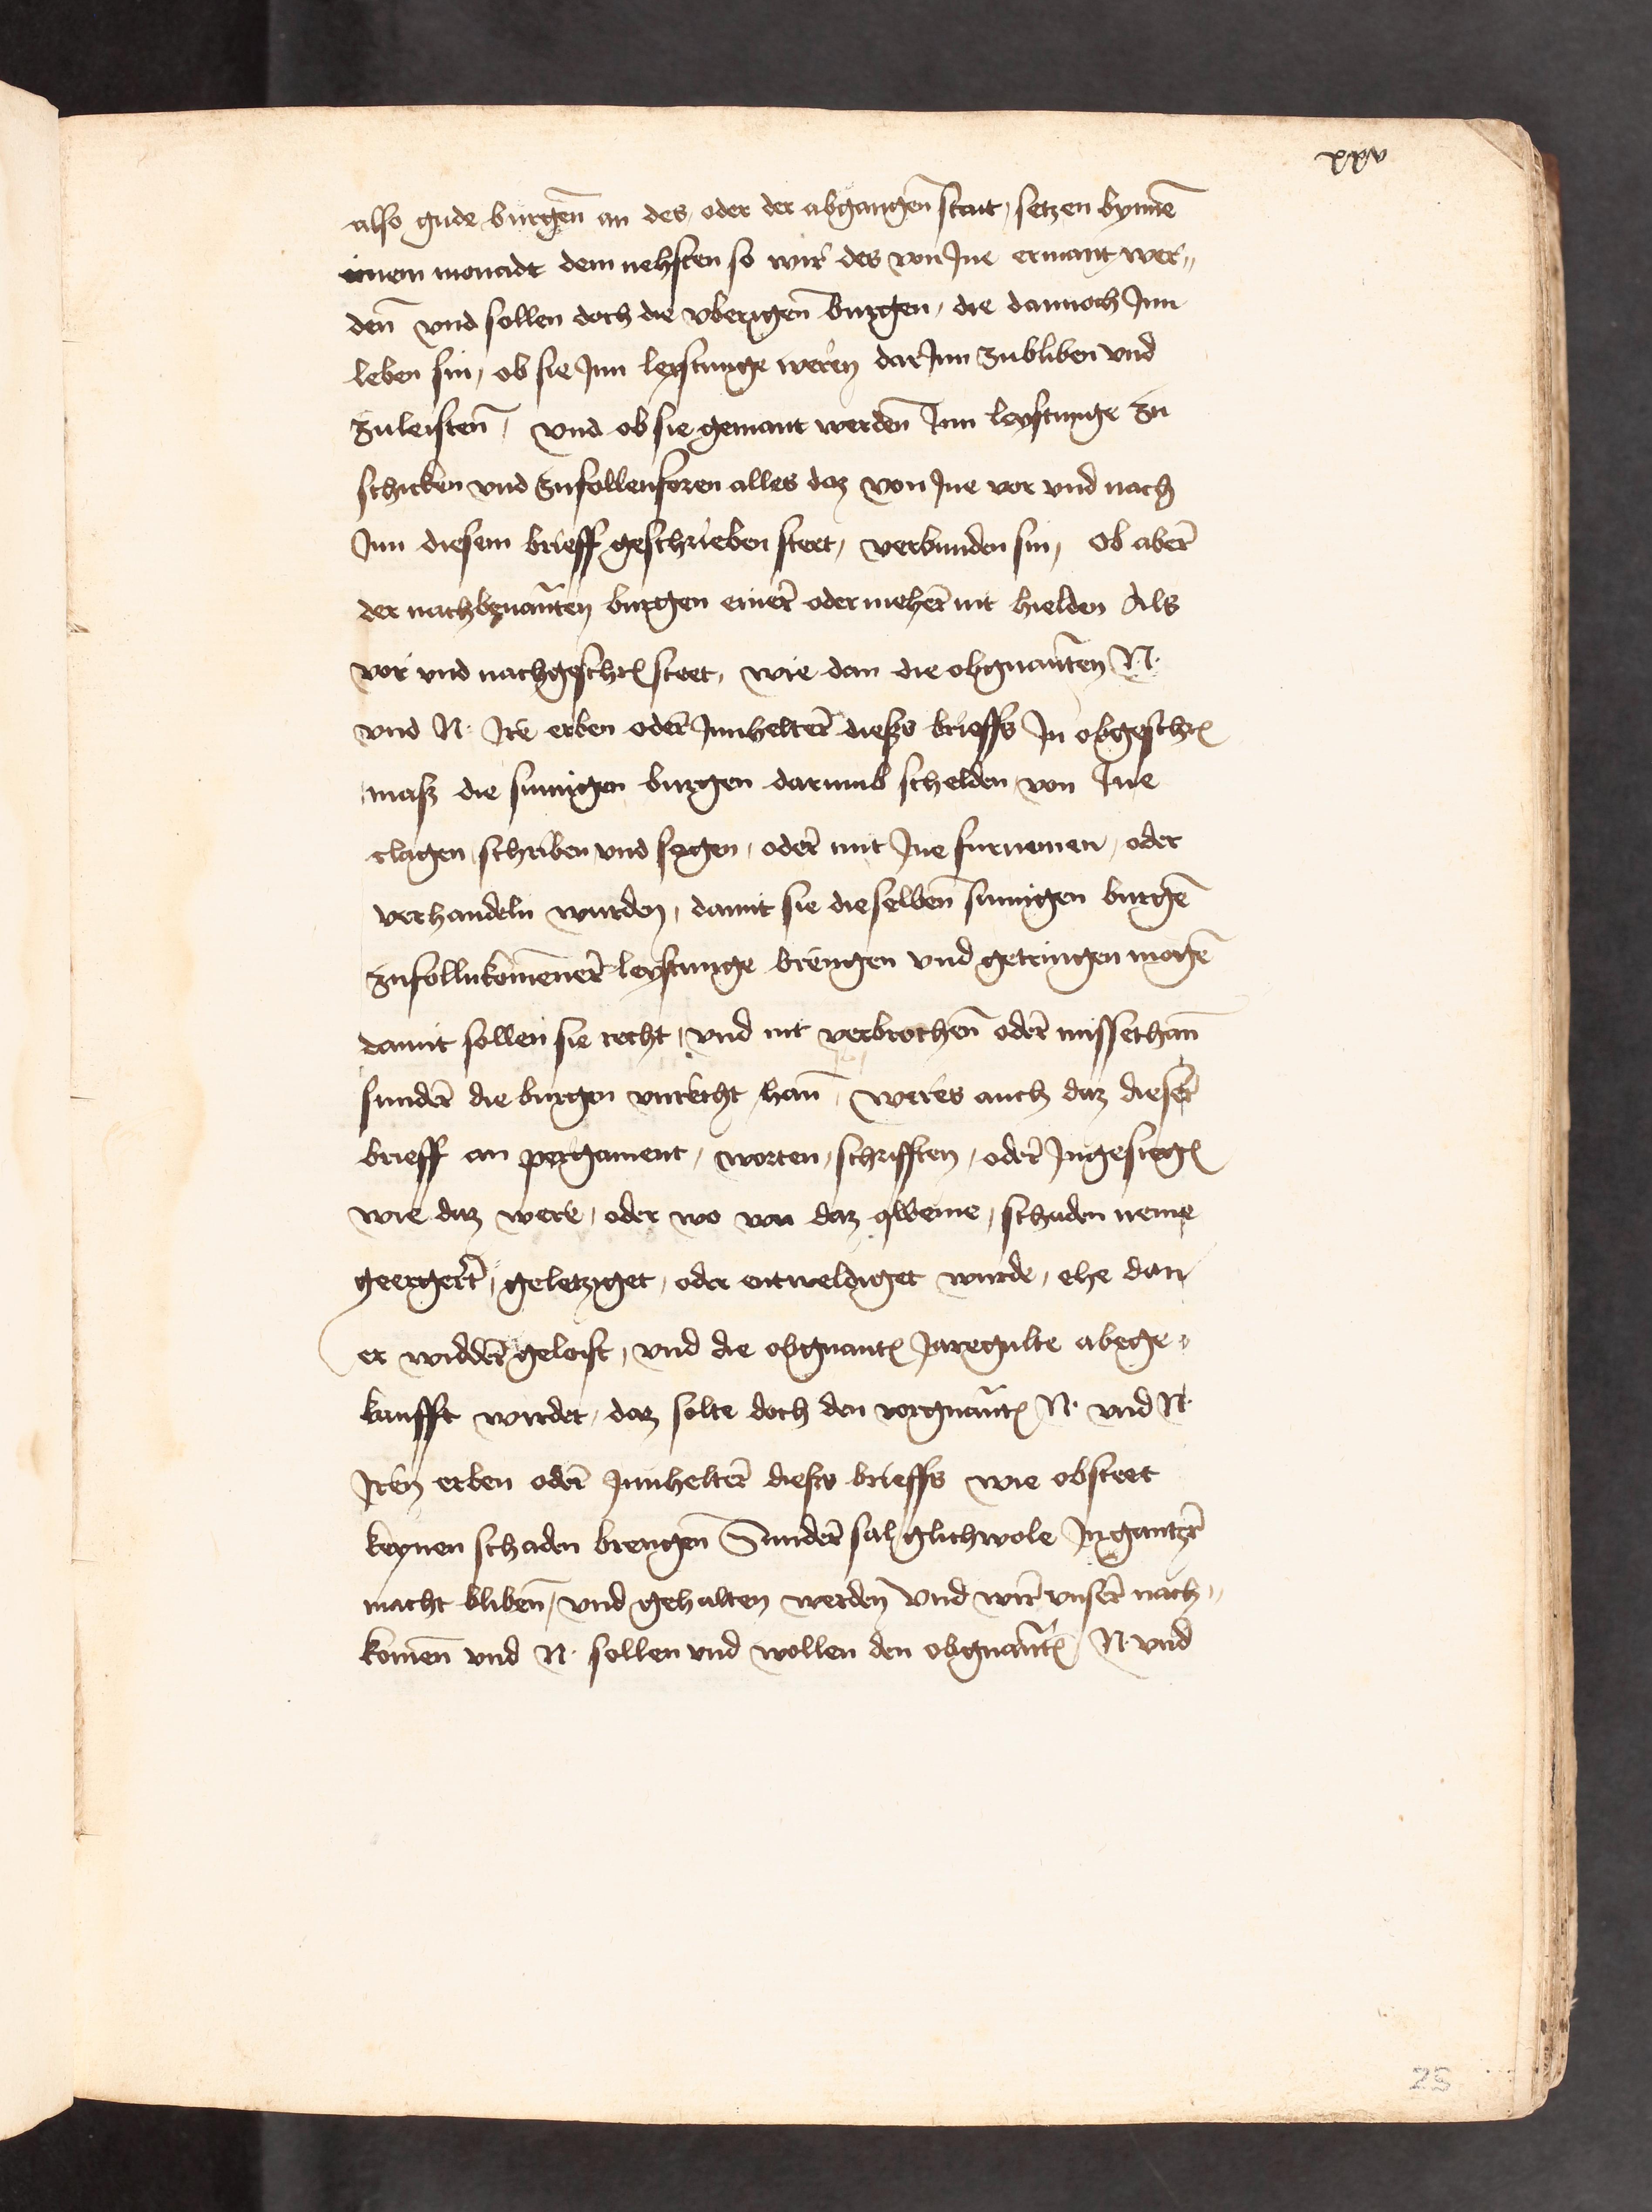 xxv
also gude burgen̄ an des, oder der abgangen̄ stait, setzen bynnē
einem monadt dem nehsten so wir des von Jne ermant wer„
den̄ vnd sollen doch die vberigen̄ burgen, die dannoch Jnn
leben sin, ob sie Jnn leystunge weren dar Jnn zubliben vnd
zuleisten̄, vnd ob sie gemant werden̄ Jnn leystunge zu
schicken vnd zufollenforen alles daz von Jne vor vnd nach
Jnn diesem brieff geschrieben steet, verbunden sin, Ob aber
der nachbenan̄ten burgen einer oder meher nit hielden Als
vor vnd nachgeschr steet, wie dan die obgnan̄ten N.
vnd N. Jre erben oder Jnnhelter dießs brieffs Jn obgeschr
maß die sumigen burgen darumb schelden von Jne
clagen schriben vnd sagen, oder mit Jne furnemen, oder
verhandeln wurden, damit sie dieselben̄ sumigen burgē
zufollnkomēner leystunge brengen vnd getringen mogē
damit sollen sie recht, vnd nit verbrochen̄ oder missethan̄
sunder die burgen vnrecht han̄, weres auch daz dieser
brieff an pergament, worten, schrifften, oder Jngesiegel
wie daz were, oder wo von daz qweme, schaden neme
geergert, geletziget, oder entweldiget wurde, ehe dan
er widder geloist, vnd die obgnant Jaregulte abege„
kaufft wirdet, daz solte doch den vorgnan̄t N. vnd N.
Jren erben oder Jnnhelter dießs brieffs wie obsteet
keynen schaden brengen̄ Sunder sal glichwole Jn gantzer
macht bliben̄, vnd gehalten werden vnd wir vnser nach„
komen̄ vnd N. sollen vnd wollen den obgnan̄t N. vnd
25